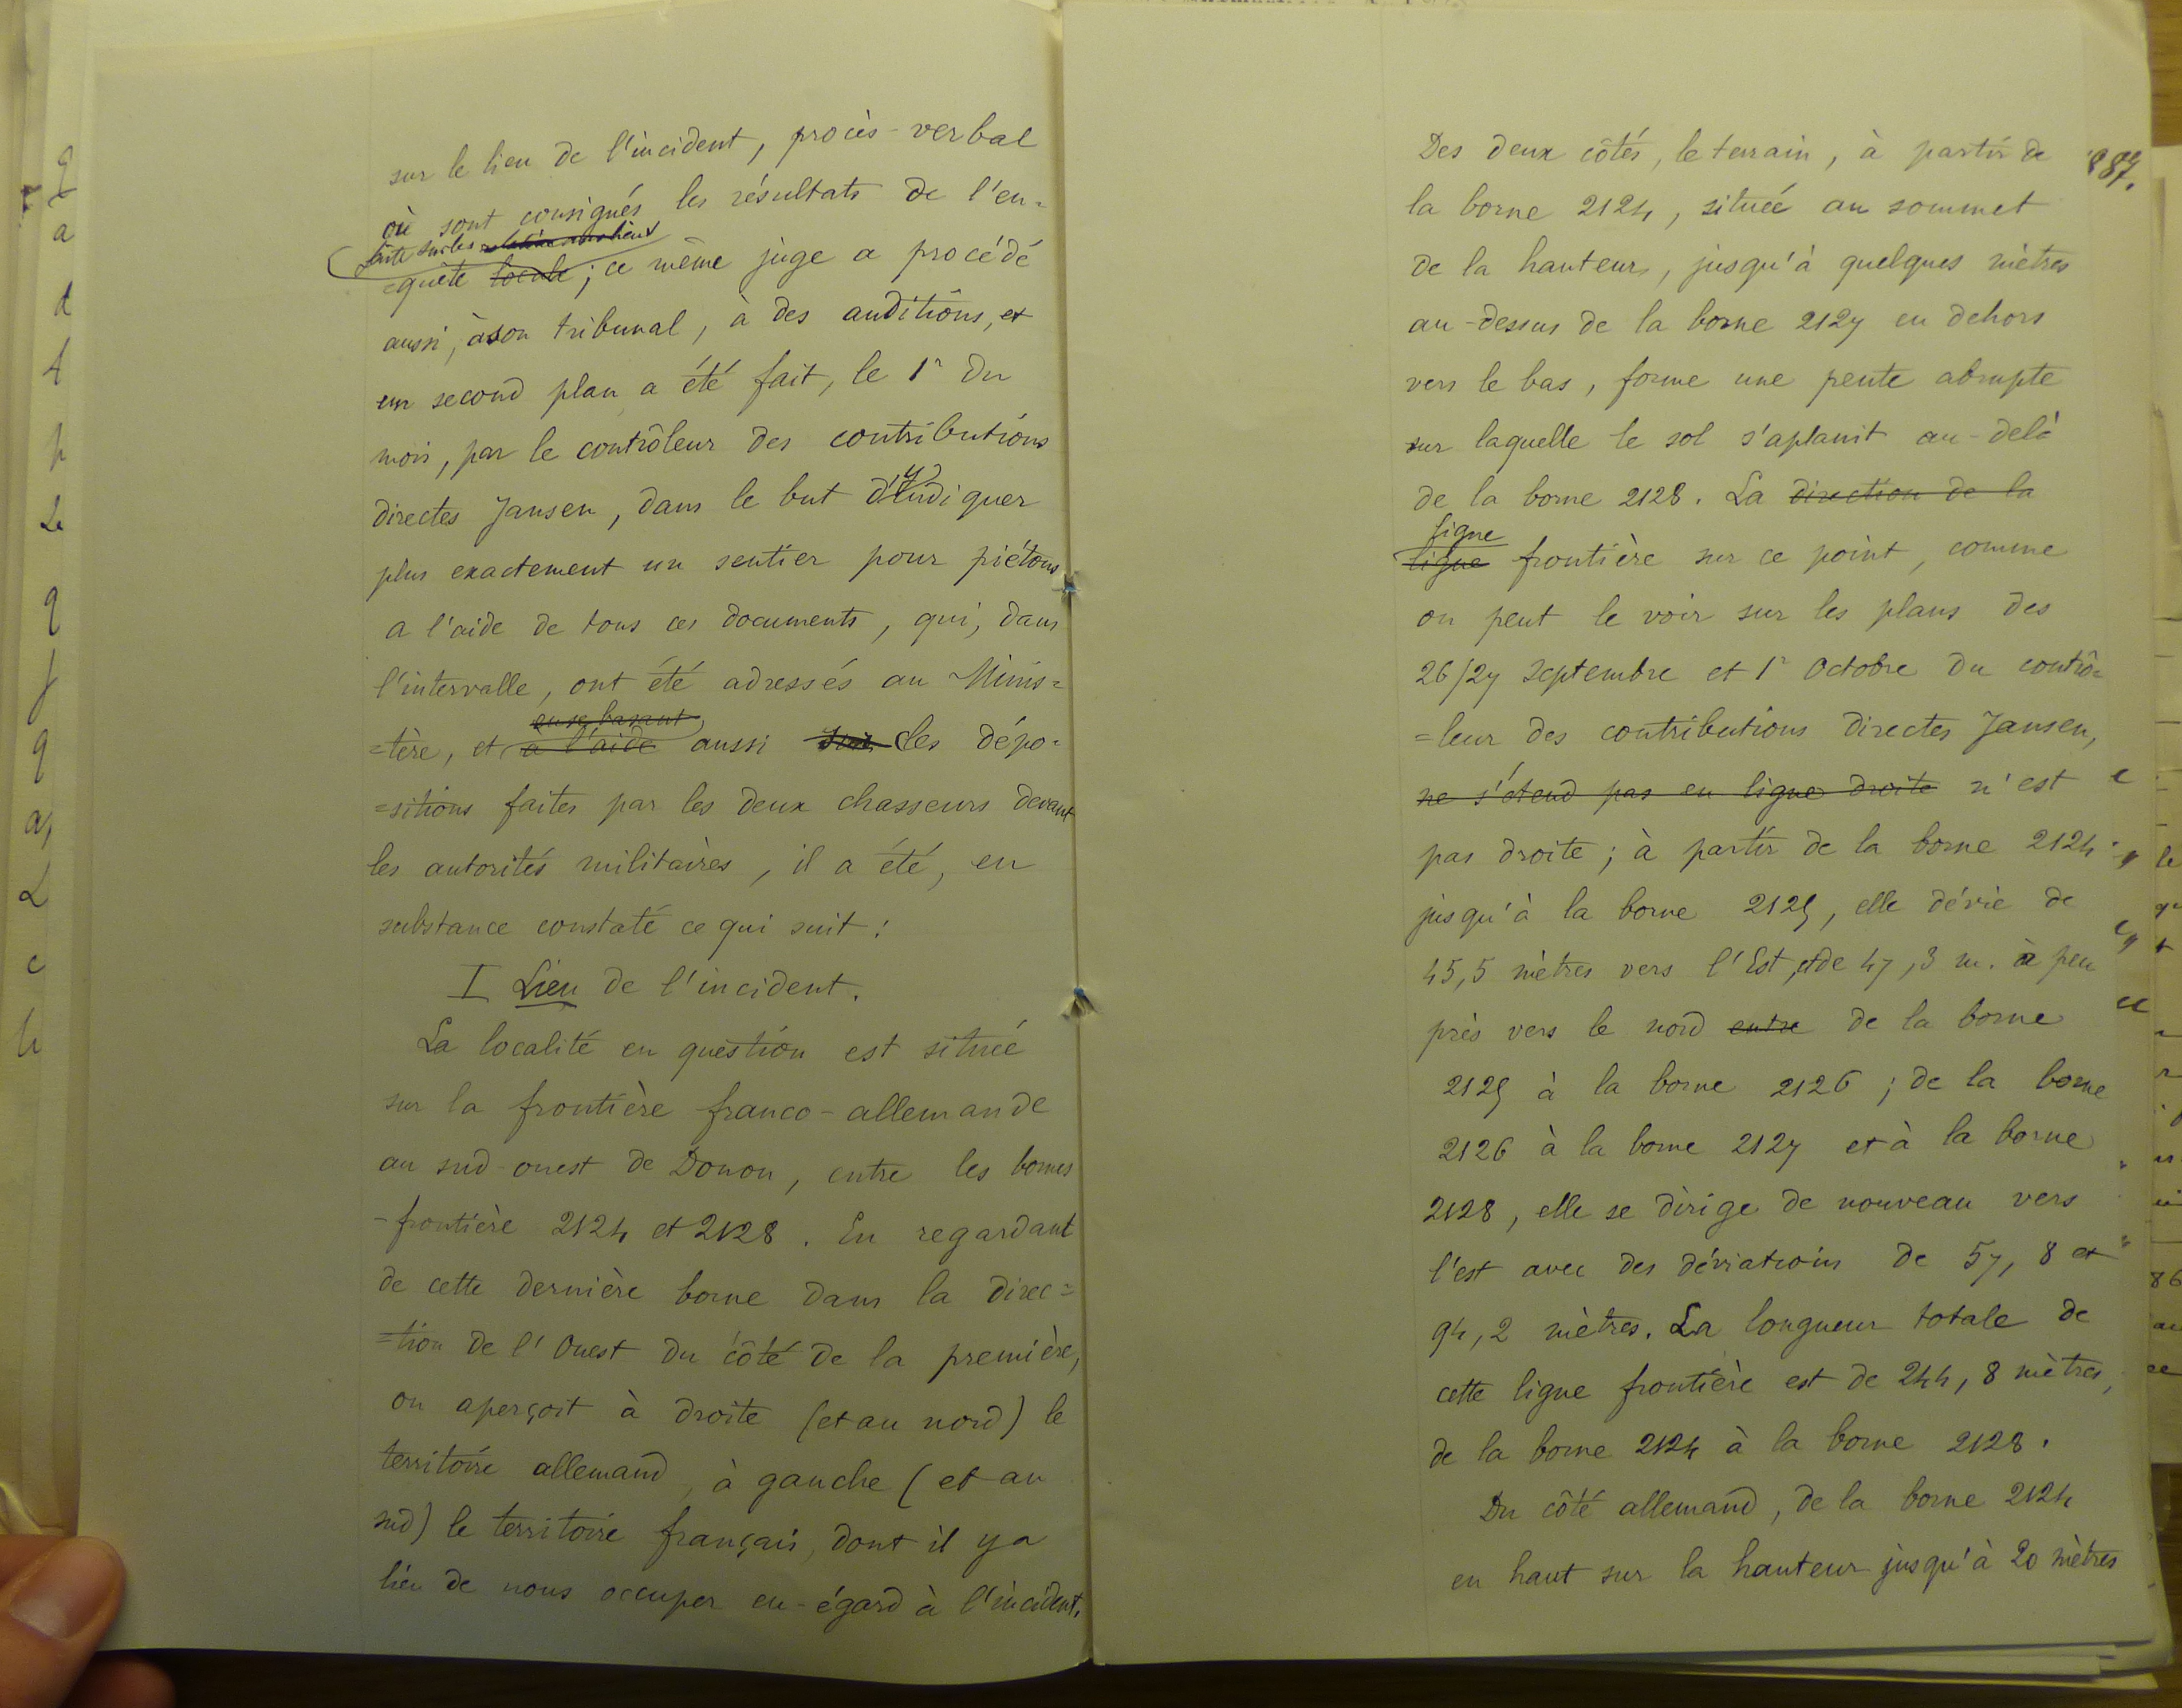 sur le lieu de l'incident, procès-verbal
où sont consignés les résultats de l'en=
faite sur les
=quête locale ; ce même juge a procédé
aussi, à son tribunal, à des auditions, et
un second plan a été fait, le 1r du
mois, par le contrôleur des contributions
directes Jansen, dans le but d'y indiquer
plus exactement un sentier pour piétons
a l'aide de tous ces documents, qui, dans
l'intervalle, ont été adressés au Minis=
en se basant
=tère, et à l'aide aussi sur les dépo=
=sitions faites par les deux chasseurs devant
les autorités militaires, il a été, en
substance constaté ce qui suit :
I Lieu de l'incident.
La localité en question est située
sur la frontière franco-allemande
au sud-ouest de Donon, entre les bornes
-frontière 2124 et 2128. En regardant
de cette dernière borne dans la direc=
=tion de l'Ouest du côté de la première,
on aperçoit à droite (et au nord) le
territoire allemand, à gauche (et au
sud) le territoire français, dont il y a
lieu de nous occuper eu-égard à l'incident.
287.
Des deux côtés, le terrain, à partir de
la borne 2124, située au sommet
de la hauteur, jusqu'à quelques mètres
au-dessus de la borne 2127 en dehors
vers le bas, forme une pente abrupte
sur laquelle le sol s'aplanit au-delà
de la borne 2128. La direction de la
ligne
ligne frontière sur ce point, comme
on peut le voir sur les plans des
26/27 Septembre et 1r Octobre du contrô=
=leur des contributions directes Jansen,
ne s'étend pas en ligne droite n'est
pas droite ; à partir de la borne 2124
jusqu'à la borne 2125, elle dévie de
45,5 mètres vers l'Est, et de 47,3 m. à peu
près vers le nord entre de la borne
2125 à la borne 2126 ; de la borne
2126 à la borne 2127 et à la borne
2128, elle se dirige de nouveau vers
l'est avec des déviations de 57,8 et
94,2 mètres. La longueur totale de
cette ligne frontière est de 244,8 mètres,
de la borne 2124 à la borne 2128.
Du côté allemand, de la borne 2124
en haut sur la hauteur jusqu'à 20 mètres